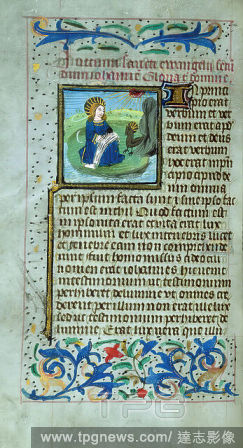 Initium sancti evangelii secun
dum Johannem Gloria tibi domine
In princi
pio erat
verbum et ver
bum erat apud
deum et deus
erat verbum
hoc erat in prin
cipio apud de
um omnia
per ipsum facta sunt et sine ipso fac
tum est nichil Quod factum est
in ipso vita erat et vita erat lux
hominum et lux in tenebris lucet
et tenebre eam non comprehende
runt fuit homo missus a deo cui
nomen erat iohannes hic venit
in testimonium ut testimonium
perhiberet de lumine ut omnes cre
derent per illum non erat ille lux
sed ut testimonium perhiberet de
lumine Erat lux vera que illu
TPG
www.tpgnews.com/達志影像